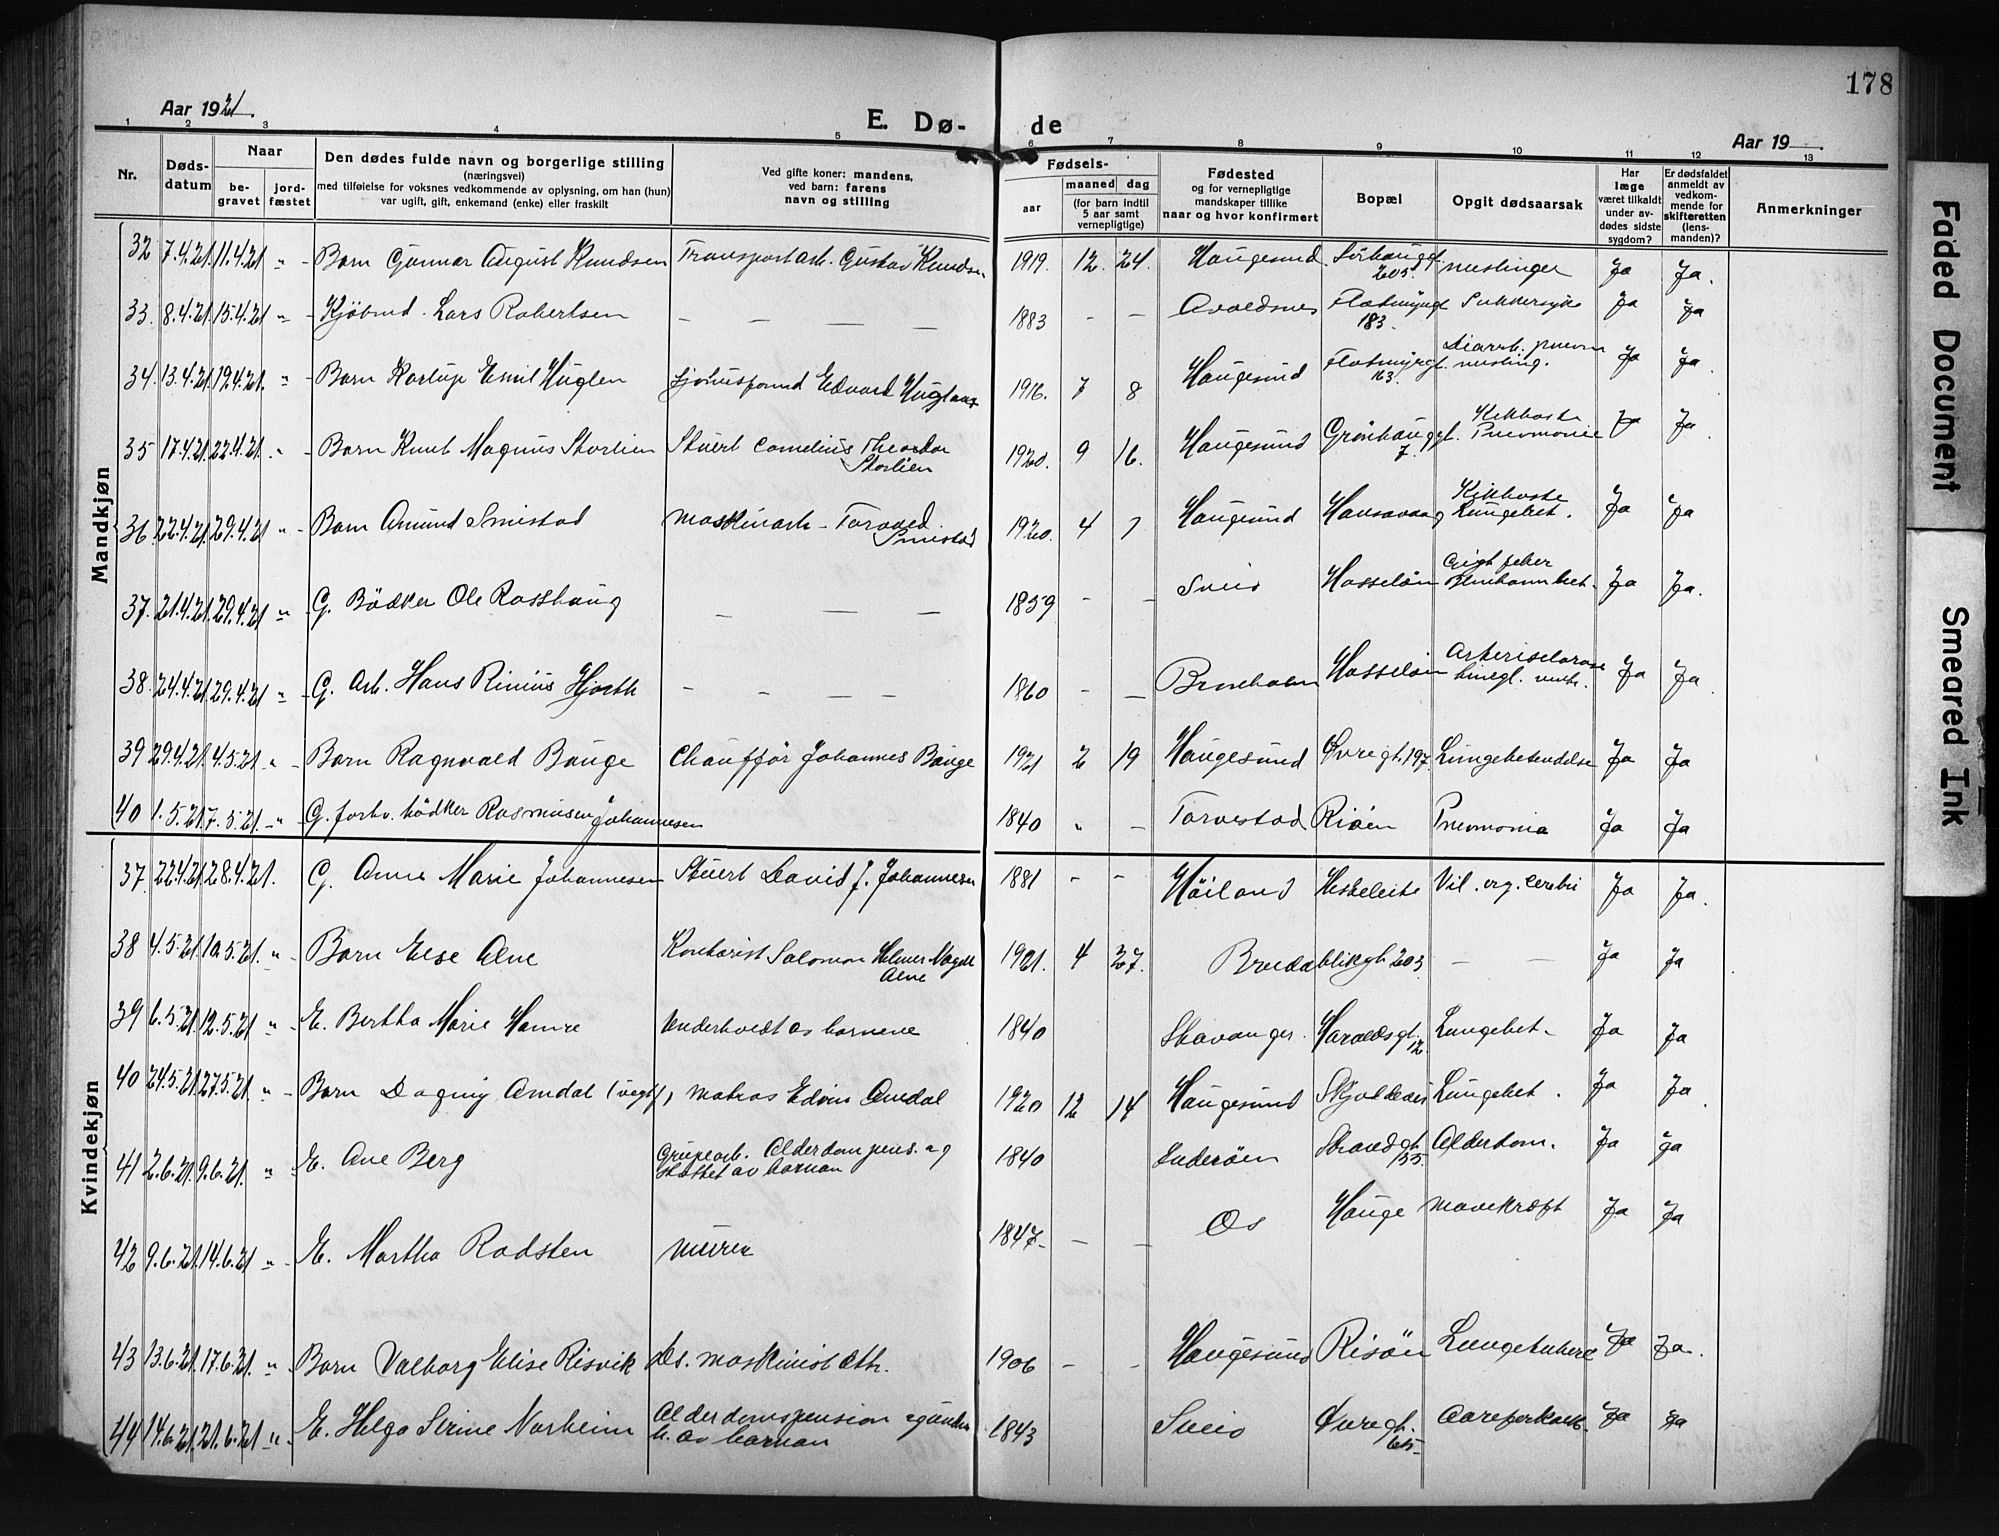 178
Aar 1921.
E. Dø-
de
Aar 19
1 2 3 4 5 6 7 8 9 10 11 12 13
Nr.
Døds-
datum
Naar
be-
gravet
jord-
fæstet
Den dødes fulde navn og borgerlige stilling
(næringsvei)
med tilføielse for voksnes vedkommende av oplysning, om han (hun)
var ugift, gift, enkemand (enke) eller fraskilt
Ved gifte koner: mandens,
ved barn: farens
navn og stilling
Fødsels-
aar
maaned
dag
(for barn indtil
5 aar samt
vernepligtige)
Fødested
og for vernepligtige
mandskaper tillike
naar og hvor konfirmert
Bopæl
Opgit dødsaarsak
Har
læge
været tilkaldt
under av-
dødes sidste
sygdom?
Er dødsfaldet
anmeldt av
vedkom-
mende for
skifteretten
(lens-
manden)?
Anmerkninger
Mandkjøn
32 7.4.21. 11.4.21 " Barn Gunnar August Knudsen Transportarb. Gustav Knudsen 1919. 12. 24. Haugesund Sørhauggt. 205. muslinger Ja Ja.
33. 8.4.21. 15.4.21 " Kjøbmd. Lars Robertsen — — — — 1883 — — Avaldsnes Flotmyrgt 183. Sukkersyke Ja Ja
34. 13.4.21. 19.4.21. " Barn Kortup Emil Huglen Edvard 1916. 7 8 Haugesund Flotmyrgt. 163. Diarrh. pneum musling. Ja Ja
35 17.4.21. 22.4.21. " Barn Knut Magnus Storlien Stuert Cornelius Theodor Storlien 1920. 9 16. Haugesund Grønhauggt. 7. Kikhoste Pneumonie Ja Ja
36. 22.4.21. 29.4.21 " Barn Amund Smistad Maskinarb. Torvald Smistad 1920. 4 7 Haugesund Havsavaag Kikhoste Lungebet. Ja Ja
37. 21.4.21. 29.4.21. " G. Bødker Ole Rosshaug — — — 1859 — — Sveio Hasseløen Gigtfeber Ja Ja.
38. 24.4.21. 29.4.21. " G. Arb. Hans Rinius Hjorth — — — — 1860 — — Hasseløen Ja Ja
39 29.4.21. 4.5.21. " Barn Ragnvald Bauge Chauffør Johannes Bauge 1921 2 19 Haugesund Øvregt. 197. Lungebetendelse Ja Ja
40 1.5.21. 7.5.21. " G. forhv. bødker Rasmus Johannesen 1840 " — Torvestad Risøen Pneumonia Ja Ja
Kvindekjøn
37 22.4.21. 28.4.21. G. Anne Marie Johannesen Stuert David J. Johannesen 1881 — — Høiland Heskeleite Vit. org. cerebri Ja Ja.
38 4.5.21. 10.5.21. " Barn Else Alne Kontorist Salomon Helmer Alne 1921. 4 27. Bredablikgt 203 — — Ja Ja
39 6.5.21. 12.5.21 " E. Bertha Marie Hamre Underholdt av barnene 1840 Stavanger. Haraldsgt. 12. Lungebet. Ja Ja
40 24.5.21. 27.5.21. " Barn Dagny Amdal (uegt), matros Edvin Amdal 1920 12 14 Haugesund Skjoldaveien Lungebet. Ja Ja
41 2.6.21. 9.6.21. " E. Ane Berg Grubearb. Alderdompens. og støttet av barnan 1840 Inderøen Strandgt. 155. Alderdom. Ja Ja
42 9.6.21. 14.6.21 " E. Martha Rodsten Murer 1847. — — Os Hauge Mavekræft Ja Ja
43 13.6.21. 17.6.21. " Barn Valborg Elise Risvik Ds. maskinist 1906 — — Haugesund Risøen Lungetuberc Ja Ja.
44 14.6.21. 21.6.21 " E. Helga Serine Norheim Alderdomspension og underh. av barnan 1843 Sveio Øvregt. 65. Aareforkalk. Ja Ja
Faded Document
Smeared Ink